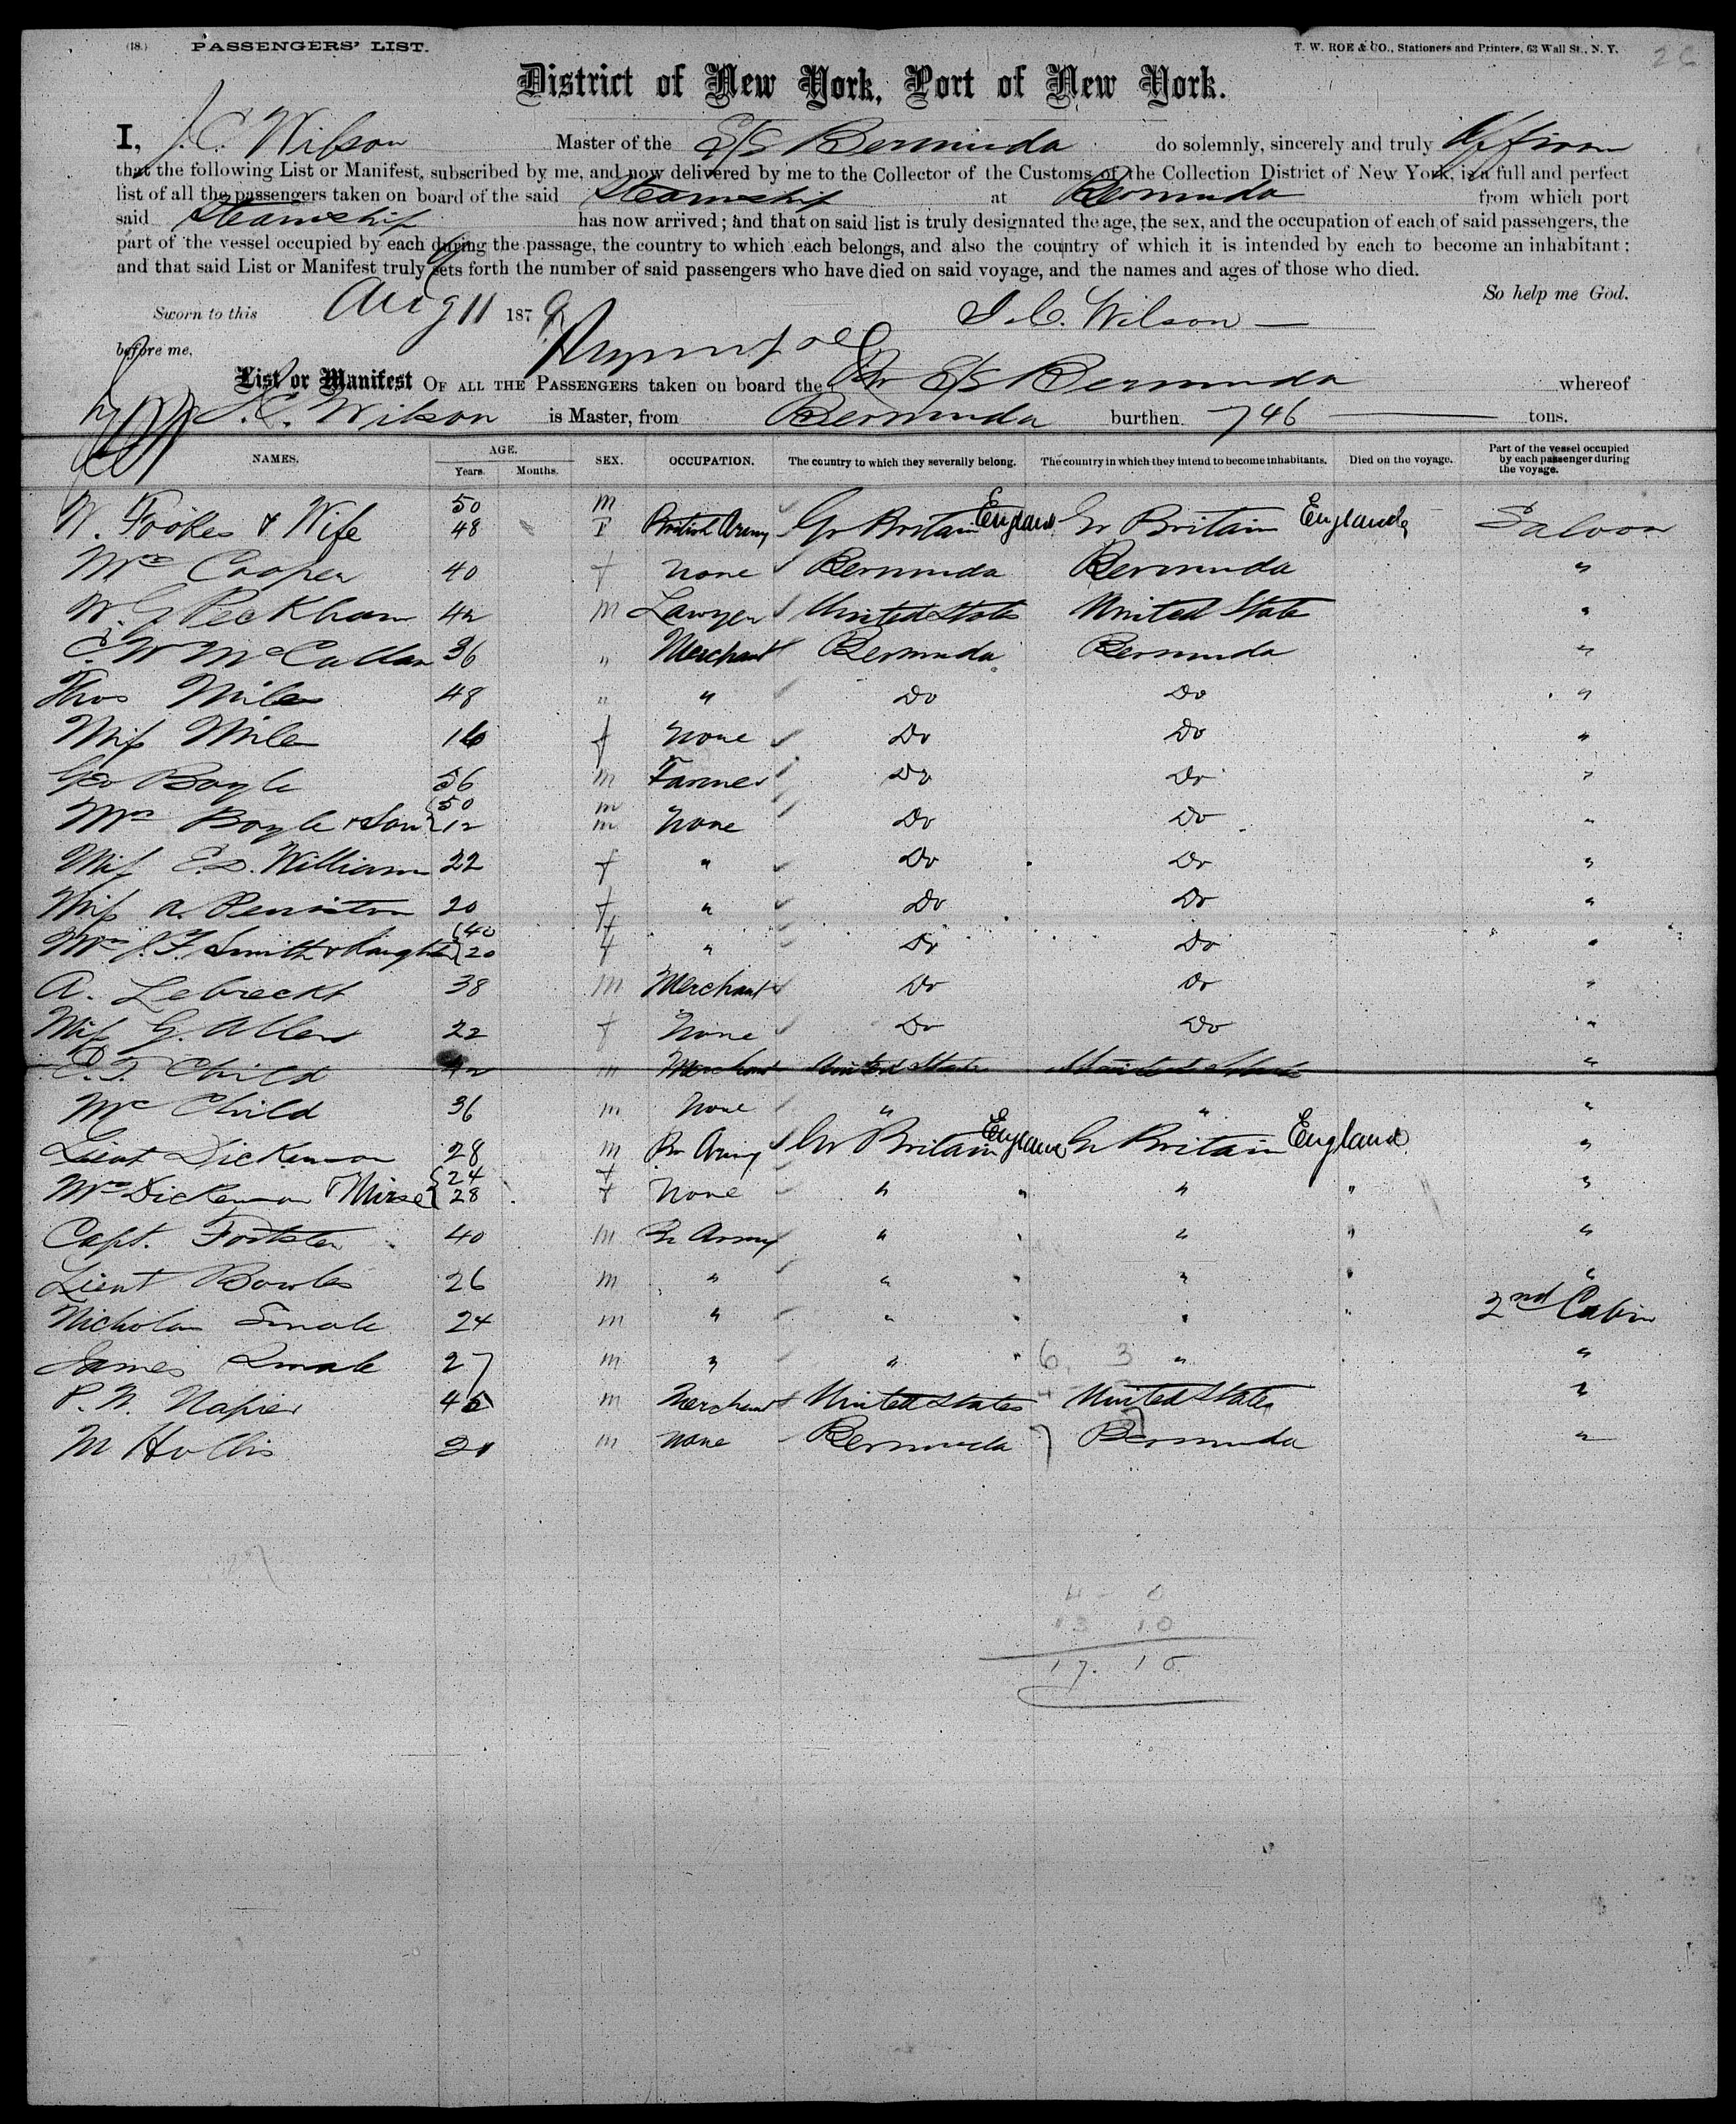 (18.) PASSENGERS' LIST. T. W. ROE & CO., Stationers and Printers, 63 Wall St., N. Y. 26
District of New York, Port of New York.
I, J. C. Wilson Master of the S/S Bermuda do solemnly, sincerely and truly Affirm
that the following List or Manifest, subscribed by me, and now delivered by me to the Collector of the Customs of the Collection District of New York, is a full and perfect
list of all the passengers taken on board of the said Steamship at Bermuda from which port
said Steamship has now arrived; and that on said list is truly designated the age, the sex, and the occupation of each of said passengers, the
part of the vessel occupied by each during the passage, the country to which each belongs, and also the country of which it is intended by each to become an inhabitant;
and that said List or Manifest truly sets forth the number of said passengers who have died on said voyage, and the names and ages of those who died.
So help me God.
Sworn to this Aug 11 1879 J. C. Wilson —
before me,
List or Manifest OF ALL THE PASSENGERS taken on board the Br S/S Bermuda whereof
J. C. Wilson is Master, from Bermuda burthen 746 tons.
NAMES. AGE. Years. Months. SEX. OCCUPATION. The country to which they severally belong. The country in which they intend to become inhabitants. Died on the voyage. Part of the vessel occupied by each passenger during the voyage.
W. Fookes & Wife 50 48 m F British Army Gr Britain England Gr Britain England Saloon
Mrs Cooper 40 f none Bermuda Bermuda "
W. G Peckham 42 m Lawyer United States United State "
C. W McCallan 36 " Merchant Bermuda Bermuda "
Thos Miles 48 " " Do Do "
Miss Miles 16 f none Do Do "
Geo Boyle 56 m Farmer Do Do "
Mrs Boyle & Son 50 12 m m none Do Do "
Miss E. D. William 22 f " Do Do "
Miss A. Peniston 20 f " Do Do "
Mrs J. F. Smith & daughter 40 20 f f " Do Do "
A. Lebreckt 38 m Merchant Do Do "
Miss G. Allen 22 f None Do Do "
E. T. Child 42 m Merchant United State United State "
Mc Child 36 m None " " "
Lieut Dickenson 28 m Br Army Gr Britain England Gr Britain England "
Mrs Dickenson & Nurse 24 28 f f None " " " " "
Capt. 40 m Br Army " " " " "
Lieut Bowles 26 m " " " " " "
Nicholas Smale 24 m " " " " " 2nd Cabin
James Smale 27 m " " " 6. 3 " "
P. N. Napier 45 m Merchant United States United States "
M Hollis 21 m none Bermuda 7 Bermuda "
4 - 0
13 10
17. 10